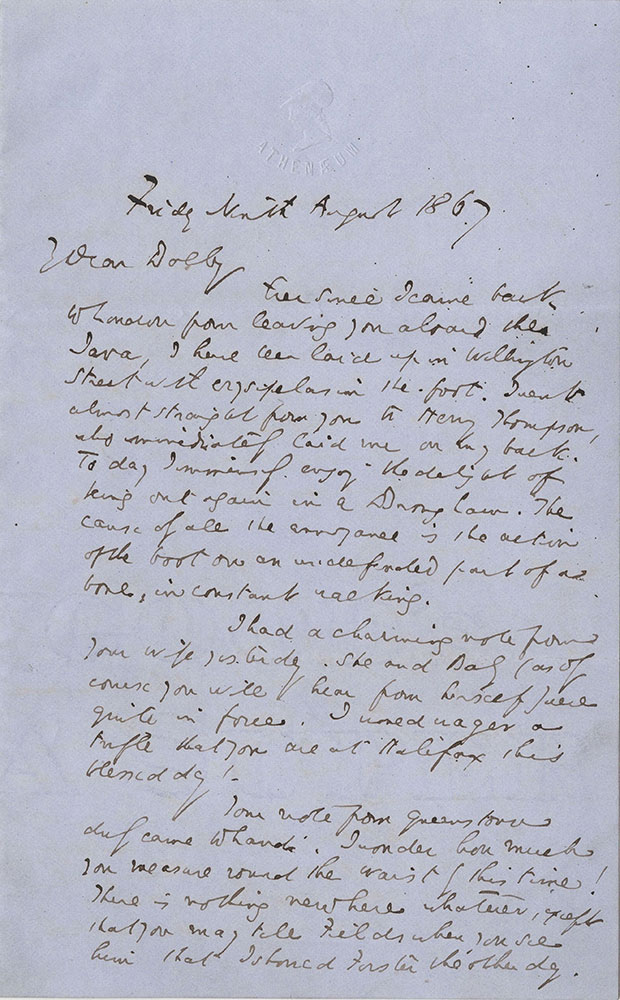 ATHENÆUM
Friday Ninth August 1867
My Dear Dolby
Ever since I came back
to London from leaving you aboard the
Java, I have been laid up in Wellington
Street with erysipelas in the foot. I went
almost straight from you to Henry Thompson,
who immediately laid me on my back.
To day I immensely enjoy the delight of
being out again in a Strong law. The
cause of all the annoyance is the action
of the boot on an undefended part of a
bone, in constant walking.
I had a charming note from
your wife yesterday. She and Baby (as of
course you will hear from herself) were
quite in force. I would wager a
trifle that you are at Halifax this
blessed day!
Your note from Queenstown
duly came to hand. I wonder how much
you measure round the waist by this time!
There is nothing new here whatever, except
that you may tell Fields when you see
him that I showed Forster the other day.